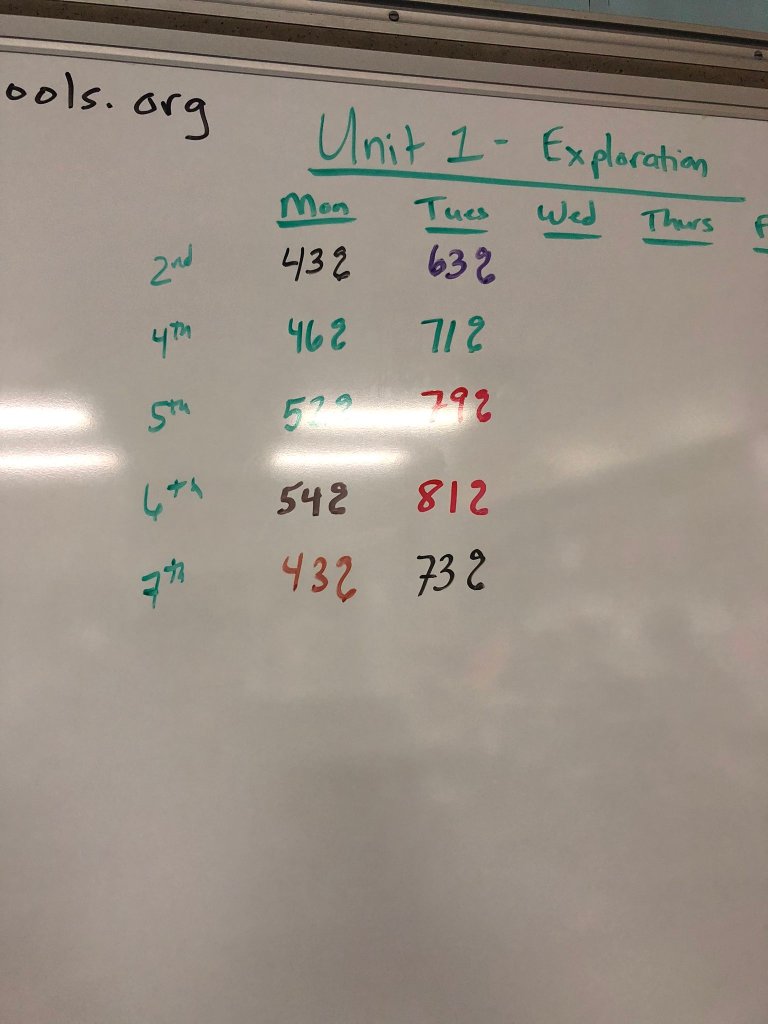 ools.org
Unit 1 - Exploration
Mon Tues Wed Thurs F
2nd 43% 63%
4th 46% 71%
5th 79%
6th 54% 81%
7th 43% 73%